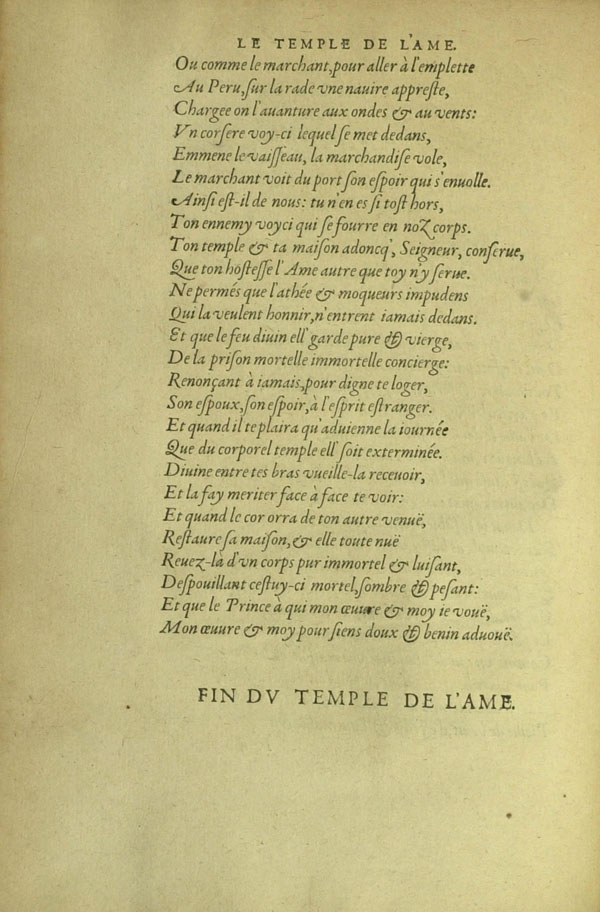 LE TEMPLE DE L'AME.
Ou comme le marchant, pour aller à l'emplette
Au Peru, ſur la rade vne nauire appreſte,
Chargee on l'auanture aux ondes & au vents:
Vn corſere voy-ci lequel ſe met dedans,
Emmene le vaiſſeau, la marchandiſe vole,
Le marchant voit du port ſon eſpoir qui s'enuolle.
Ainſi eſt-il de nous: tu n'en es ſi toſt hors,
Ton ennemy voyci qui ſe fourre en noz corps.
Ton temple & ta maiſon adoncq', Seigneur, conſerue,
Que ton hoſteſſe l'Ame autre que toy n'y ſerue.
Ne permés que l'athée & moqueurs impudens
Qui la veulent honnir, n'entrent iamais dedans.
Et que le feu diuin ell' garde pure & vierge,
De la priſon mortelle immortelle concierge:
Renonçant à iamais, pour digne te loger,
Son eſpoux, ſon eſpoir, à l'eſprit eſtranger.
Et quand il te plaira qu'aduienne la iournée
Que du corporel temple ell' ſoit exterminée.
Diuine entre tes bras vueille-la receuoir,
Et la fay meriter face à face te voir:
Et quand le cor orra de ton autre venuë,
Reſtaure ſa maiſon, & elle toute nuë
Reuez-là d'vn corps pur immortel & luiſant,
Deſpouillant ceſtuy-ci mortel, ſombre & peſant:
Et que le Prince à qui mon œuure & moy ie vouë,
Mon œuure & moy pour ſiens doux & benin aduouë.
FIN DV TEMPLE DE L'AME.